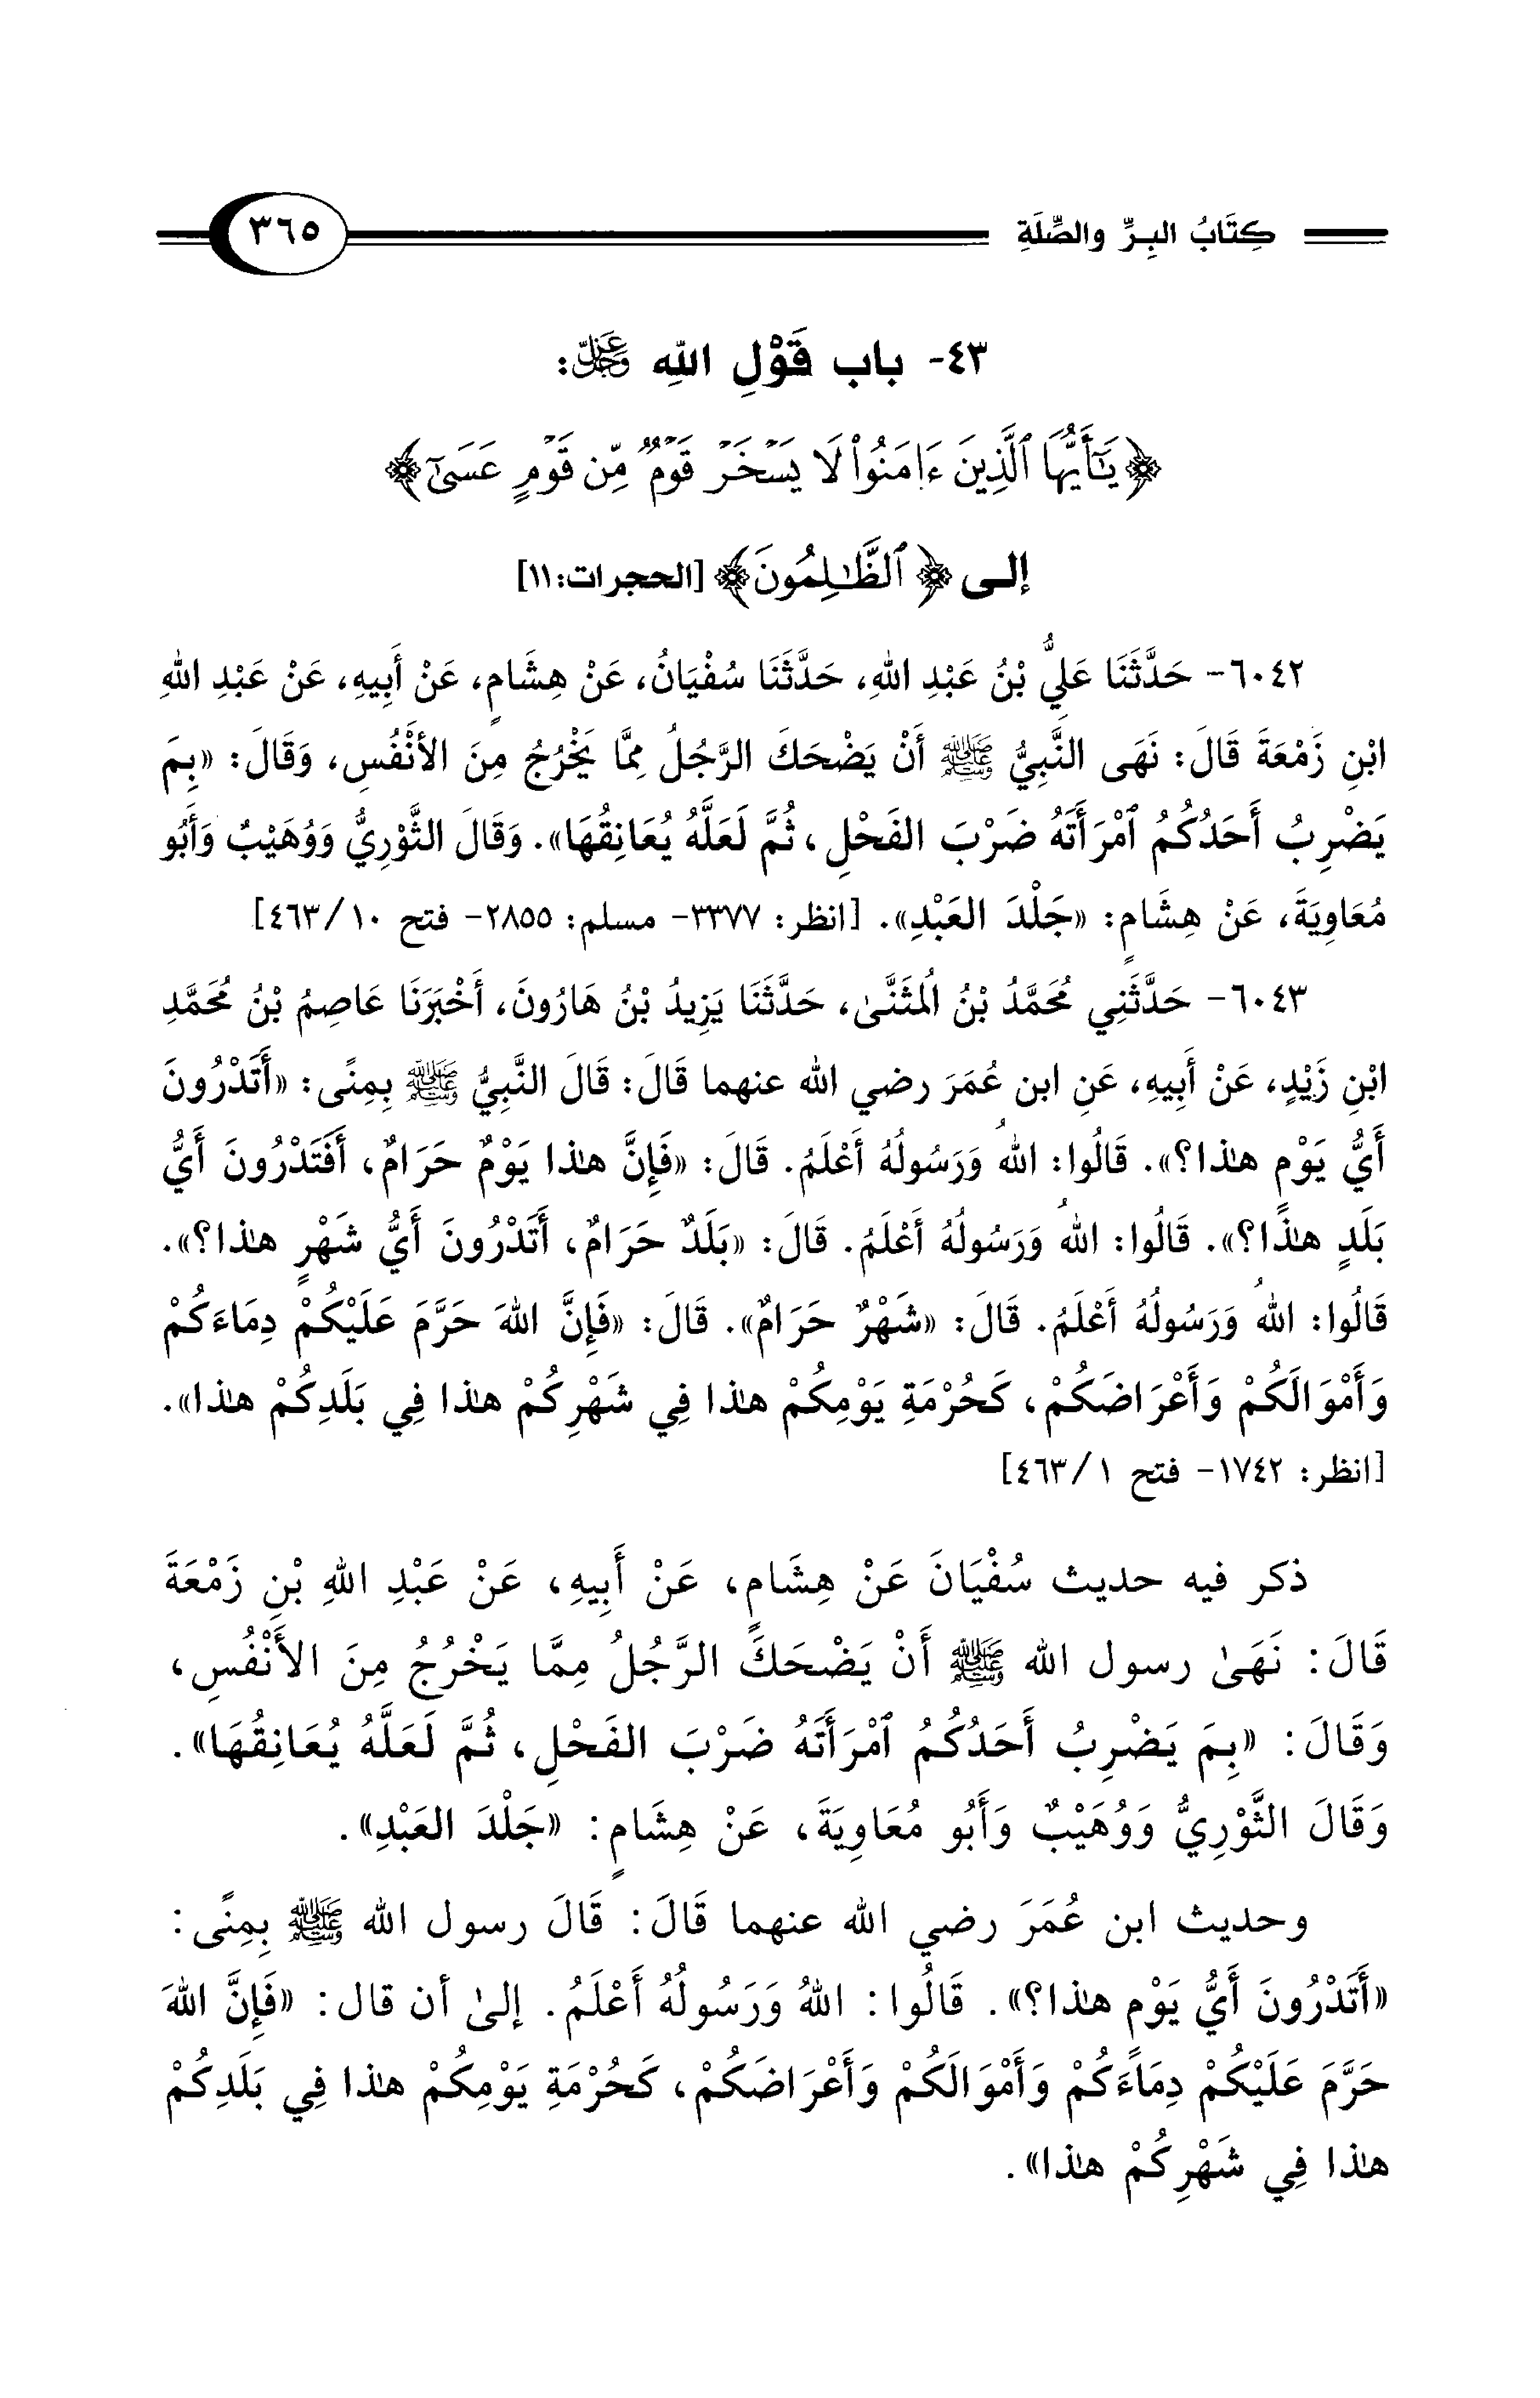 كِتَابُ البِرِّ والصِّلَةِ ٣٦٥
٤٣- باب قَوْلِ اللهِ عَزَّ وَجَلَّ:
﴿يَٰٓأَيُّهَا ٱلَّذِينَ ءَامَنُوا۟ لَا يَسْخَرْ قَوْمٌ مِّن قَوْمٍ عَسَىٰٓ﴾
إلى ﴿ٱلظَّٰلِمُونَ﴾ [الحجرات: ١١]
٦٠٤٢- حَدَّثَنَا عَلِيُّ بْنُ عَبْدِ اللهِ، حَدَّثَنَا سُفْيَانُ، عَنْ هِشَامٍ، عَنْ أَبِيهِ، عَنْ عَبْدِ اللهِ
ابْنِ زَمْعَةَ قَالَ: نَهَى النَّبِيُّ ﷺ أَنْ يَضْحَكَ الرَّجُلُ مِمَّا يَخْرُجُ مِنَ الأَنْفُسِ، وَقَالَ: «بِمَ
يَضْرِبُ أَحَدُكُمُ ٱمْرَأَتَهُ ضَرْبَ الفَحْلِ، ثُمَّ لَعَلَّهُ يُعَانِقُهَا». وَقَالَ الثَّوْرِيُّ وَوُهَيْبٌ وَأَبُو
مُعَاوِيَةَ، عَنْ هِشَامٍ: «جَلْدَ العَبْدِ». [انظر: ٣٣٧٧- مسلم: ٢٨٥٥- فتح ١٠/ ٤٦٣]
٦٠٤٣- حَدَّثَنِي مُحَمَّدُ بْنُ المُثَنَّىٰ، حَدَّثَنَا يَزِيدُ بْنُ هَارُونَ، أَخْبَرَنَا عَاصِمُ بْنُ مُحَمَّدِ
ابْنِ زَيْدٍ، عَنْ أَبِيهِ، عَنِ ابن عُمَرَ رضي الله عنهما قَالَ: قَالَ النَّبِيُّ ﷺ بِمِنًى: «أَتَدْرُونَ
أَيُّ يَوْمٍ هٰذا؟». قَالُوا: اللهُ وَرَسُولُهُ أَعْلَمُ. قَالَ: «فَإِنَّ هٰذا يَوْمٌ حَرَامٌ، أَفَتَدْرُونَ أَيُّ
بَلَدٍ هٰذَا؟». قَالُوا: اللهُ وَرَسُولُهُ أَعْلَمُ. قَالَ: «بَلَدٌ حَرَامٌ، أَتَدْرُونَ أَيُّ شَهْرٍ هٰذا؟».
قَالُوا: اللهُ وَرَسُولُهُ أَعْلَمُ. قَالَ: «شَهْرٌ حَرَامٌ». قَالَ: «فَإِنَّ اللهَ حَرَّمَ عَلَيْكُمْ دِمَاءَكُمْ
وَأَمْوَالَكُمْ وَأَعْرَاضَكُمْ، كَحُرْمَةِ يَوْمِكُمْ هٰذا فِي شَهْرِكُمْ هٰذا فِي بَلَدِكُمْ هٰذا».
[انظر: ١٧٤٢- فتح ١/ ٤٦٣]
ذكر فيه حديث سُفْيَانَ عَنْ هِشَامٍ، عَنْ أَبِيهِ، عَنْ عَبْدِ اللهِ بْنِ زَمْعَةَ
قَالَ: نَهَىٰ رسول الله ﷺ أَنْ يَضْحَكَ الرَّجُلُ مِمَّا يَخْرُجُ مِنَ الأَنْفُسِ،
وَقَالَ: «بِمَ يَضْرِبُ أَحَدُكُمُ ٱمْرَأَتَهُ ضَرْبَ الفَحْلِ، ثُمَّ لَعَلَّهُ يُعَانِقُهَا».
وَقَالَ الثَّوْرِيُّ وَوُهَيْبٌ وَأَبُو مُعَاوِيَةَ، عَنْ هِشَامٍ: «جَلْدَ العَبْدِ».
وحديث ابن عُمَرَ رضي الله عنهما قَالَ: قَالَ رسول الله ﷺ بِمِنًى:
«أَتَدْرُونَ أَيُّ يَوْمٍ هٰذا؟». قَالُوا: اللهُ وَرَسُولُهُ أَعْلَمُ. إلىٰ أن قال: «فَإِنَّ اللهَ
حَرَّمَ عَلَيْكُمْ دِمَاءَكُمْ وَأَمْوَالَكُمْ وَأَعْرَاضَكُمْ، كَحُرْمَةِ يَوْمِكُمْ هٰذا فِي بَلَدِكُمْ
هٰذا فِي شَهْرِكُمْ هٰذا».